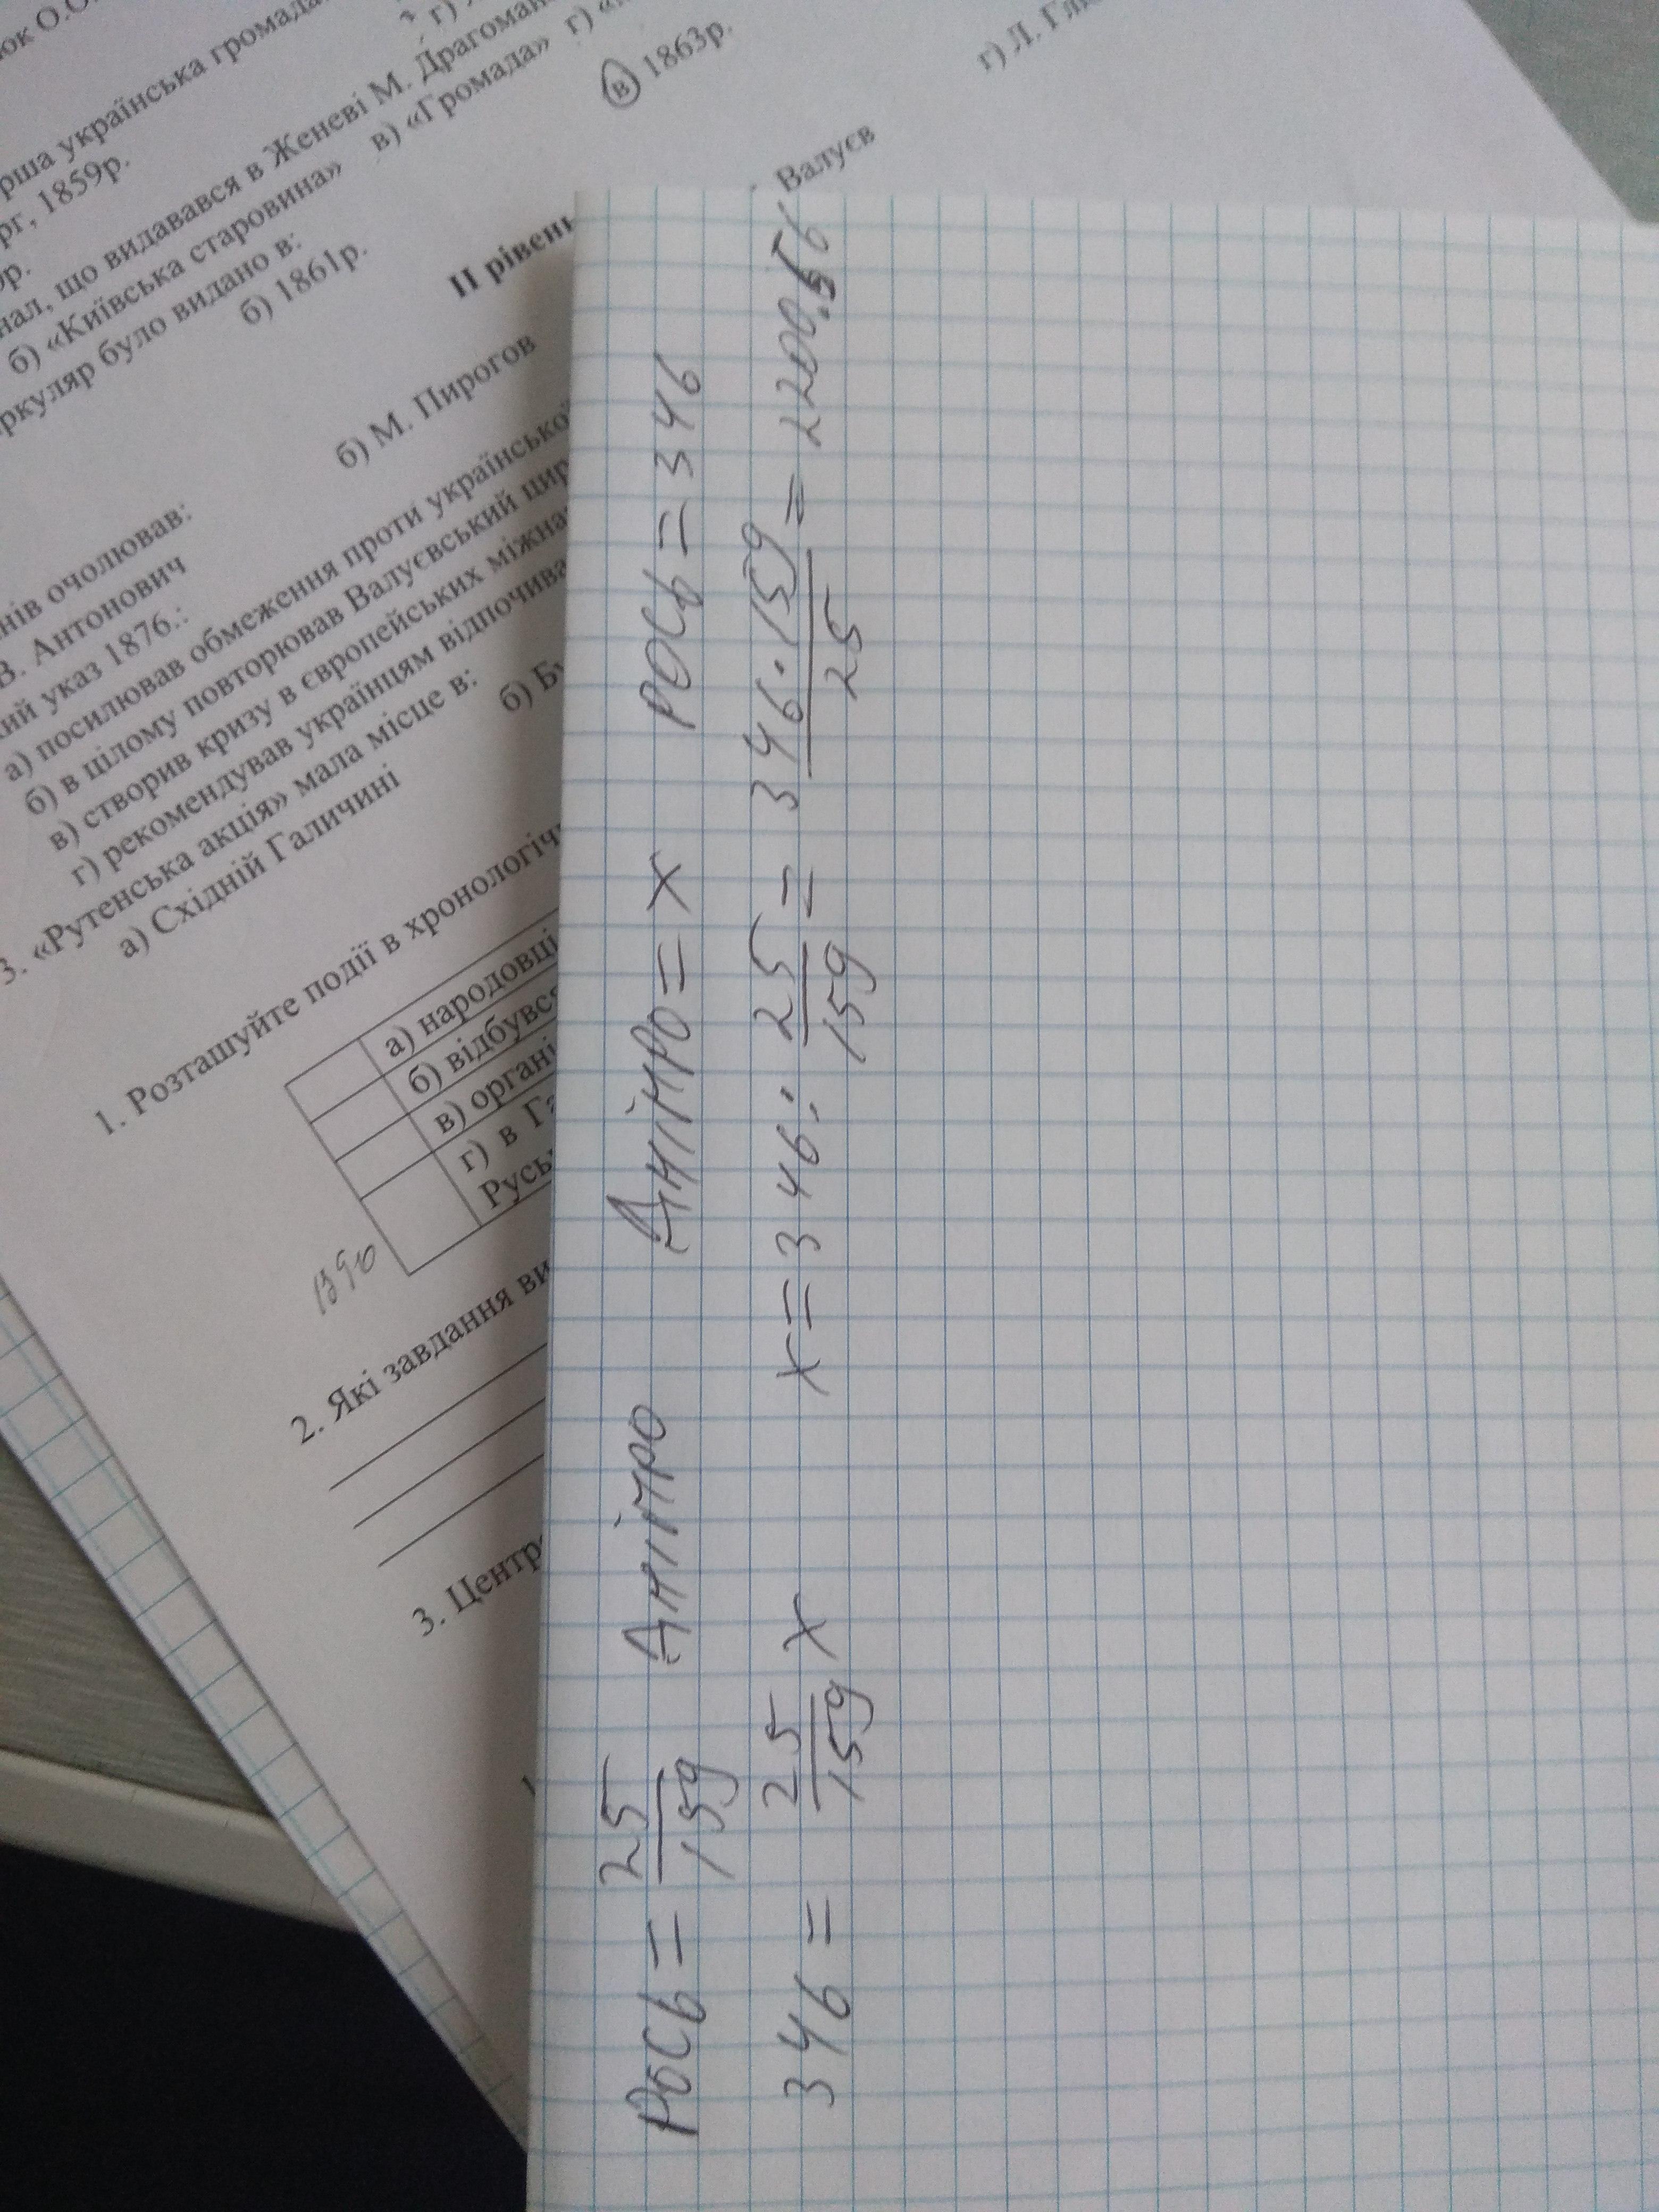 рша українська громада
рг, 1859р.
нал, що видавався в Женеві М. Драгоман
б) «Київська старовина» в) «Громада» г) «
ркуляр було видано в:
б) 1861р. в) 1863р.
ІІ рівень
б) М. Пирогов Валуєв
нів очолював:
В. Антонович
ий указ 1876.:
а) посилював обмеження проти української
б) в цілому повторював Валуєвський цир
в) створив кризу в європейських міжна
г) рекомендував українцям відпочива
3. «Рутенська акція» мала місце в:
а) Східній Галичині б) Бу
1. Розташуйте події в хронологіч
а) народовці
б) відбувся
в) органі
г) в Га
Русь
2. Які завдання ви
3. Центр
Рось = 25/159 Дніпро Дніпро = x Рось = 346
346 = 25/159 x x = 346 : 25/159 = 346·159/25 = 2200.56